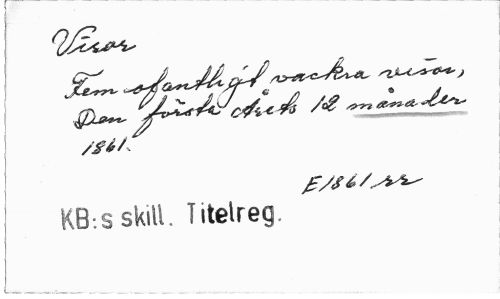 Visor
Fem ofantligt vackra visor,
Den första Årets 12 månader
1861.
E1861 rr
KB:s skill. Titelreg.